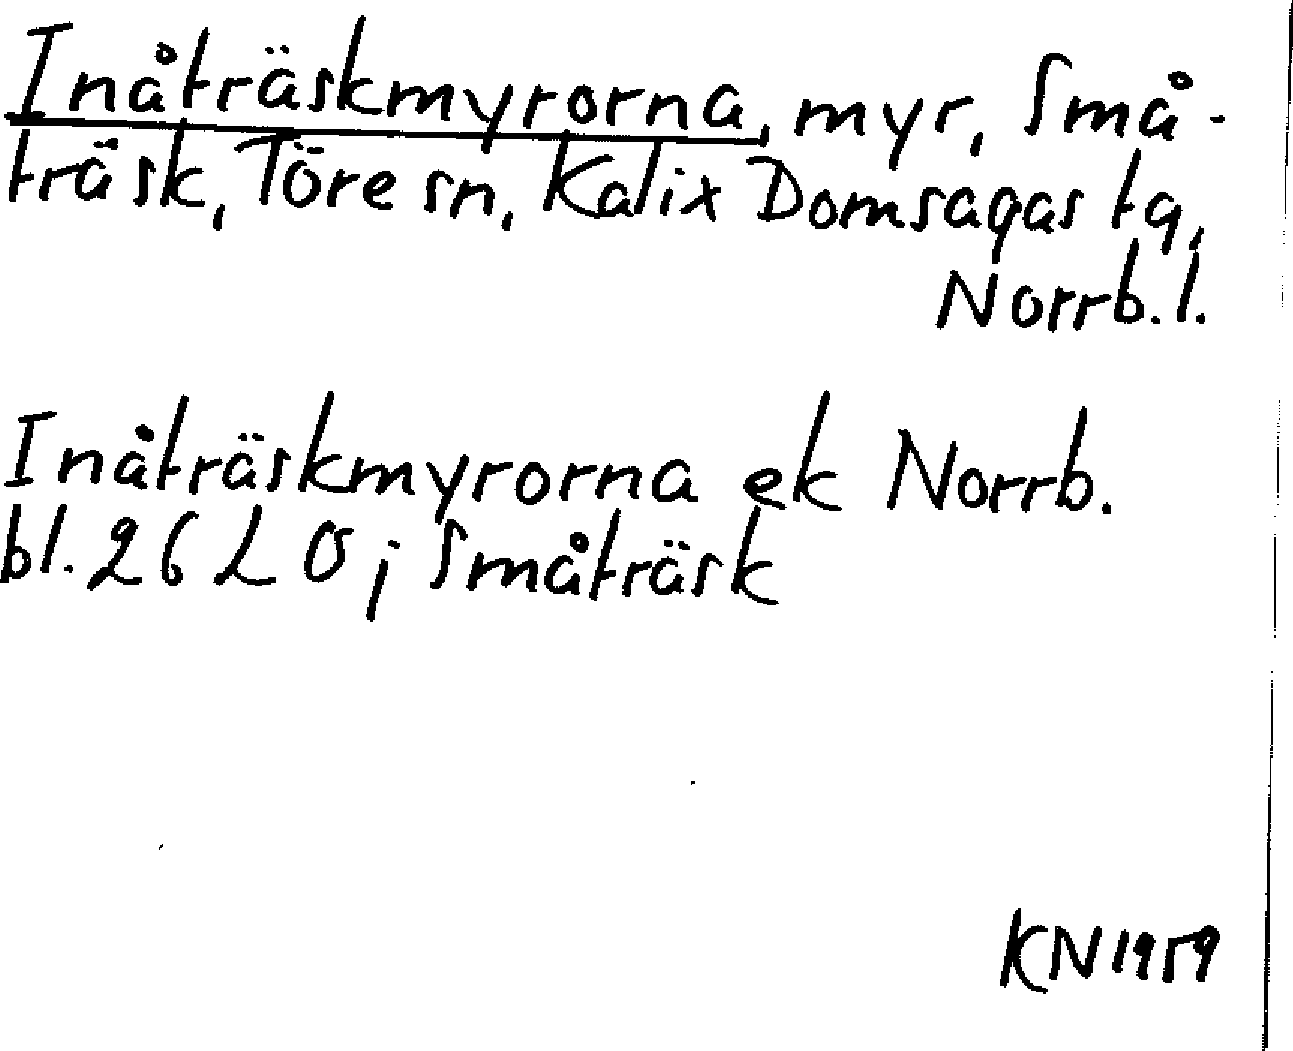 Inåträskmyrorna, myr, Små-
träsk, Töre sn, Kalix Domsagas tg,
Norrb. l.
Inåträskmyrorna ek Norrb.
bl. 26 L O; Småträsk
KN 1959